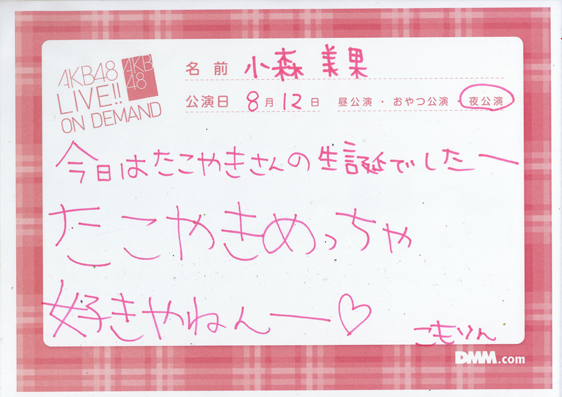 AKB48
LIVE!!
ON DEMAND
AKB
48
名前 小森 美果
公演日 8月12日 昼公演・おやつ公演・夜公演
今日はたこやきさんの生誕でしたー
たこやきめっちゃ
好きやねんー♡
こもりん
DMM.com